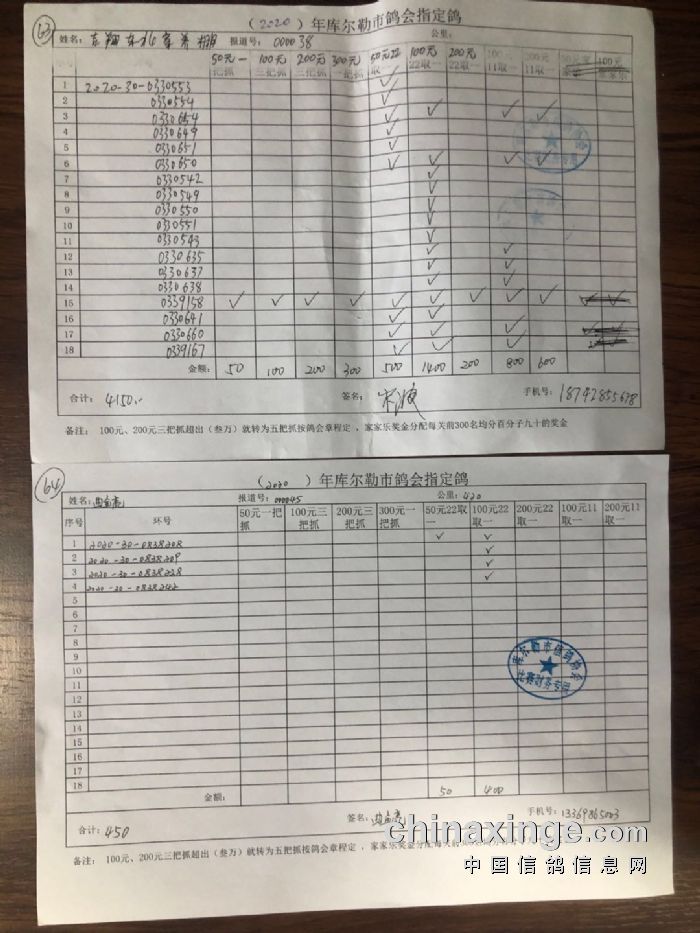 63
(2020)年库尔勒市鸽会指定鸽
姓名: 报道号: 000038 公里:
50元一把抓 100元三把抓 200元三把抓 300元一把抓 50元22取一 100元22取一 200元22取一 100元11取一 200元11取一 100元
1 2020-30-0330553 ✓
2 0330554 ✓
3 0330654 ✓ ✓ ✓ ✓
4 0330649 ✓
5 0330651 ✓
6 0330650 ✓ ✓ ✓ ✓
7 0330542 ✓
8 0330549 ✓
9 0330550 ✓
10 0330551 ✓
11 0330543 ✓
12 0330635 ✓ ✓
13 0330637 ✓ ✓
14 0330638 ✓ ✓
15 0339158 ✓ ✓ ✓ ✓ ✓ ✓ ✓ ✓ ✓
16 0330641 ✓ ✓
17 0330660 ✓ ✓ ✓
18 0339167 ✓ ✓ ✓
金额: 50 100 200 300 500 1400 200 800 600
合计: 4150.- 签名: 手机号: 18742855678
备注: 100元、200元三把抓超出(叁万)就转为五把抓按鸽会章程定,家家乐奖金分配每关前300名均分百分子九十的奖金
64
(2020)年库尔勒市鸽会指定鸽
姓名: 报道号: 000045 公里: 420
序号 环号 50元一把抓 100元三把抓 200元三把抓 300元一把抓 50元22取一 100元22取一 200元22取一 100元11取一 200元11取一
1 2020-30-0838208 ✓ ✓
2 2020-30-0838209 ✓
3 2020-30-0838238 ✓
4 2020-30-0838242 ✓
5
6
7
8
9
10
11
12
13
14
15
16
17
18
库尔勒市信鸽协会
比赛财务专用
金额: 50 400
合计: 450 签名: 手机号: 13369865003
备注: 100元、200元三把抓超出(叁万)就转为五把抓按鸽会章程定,家家乐奖金分配每关前
chinaxinge.com
中国信鸽信息网